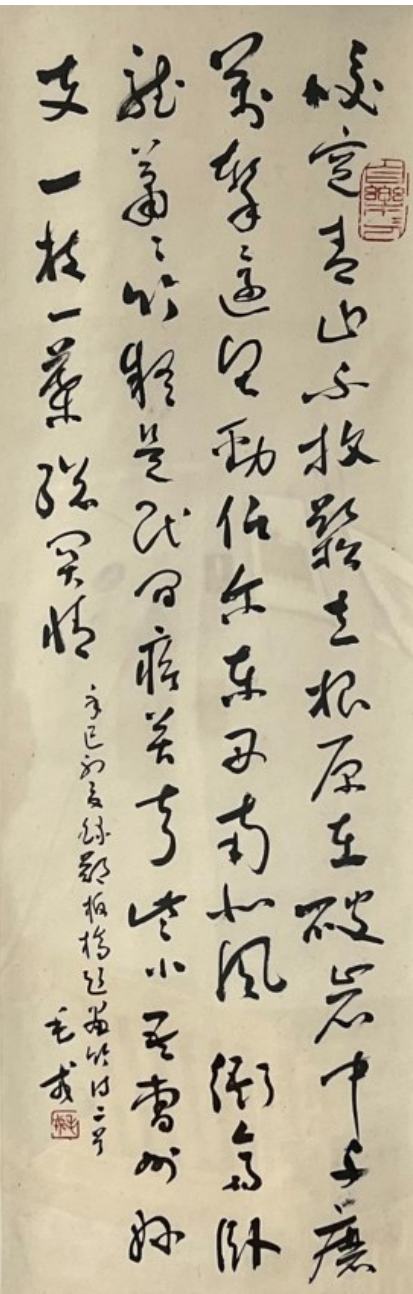 咬定青山不放鬆立根原在破岩中千磨
萬擊還堅勁任尔東西南北風 衙斋卧
聽蕭〻竹疑是民間疾苦聲些小吾曹州縣
吏一枝一葉總關情
辛巳初夏錄鄭板橋題畫竹詩二首